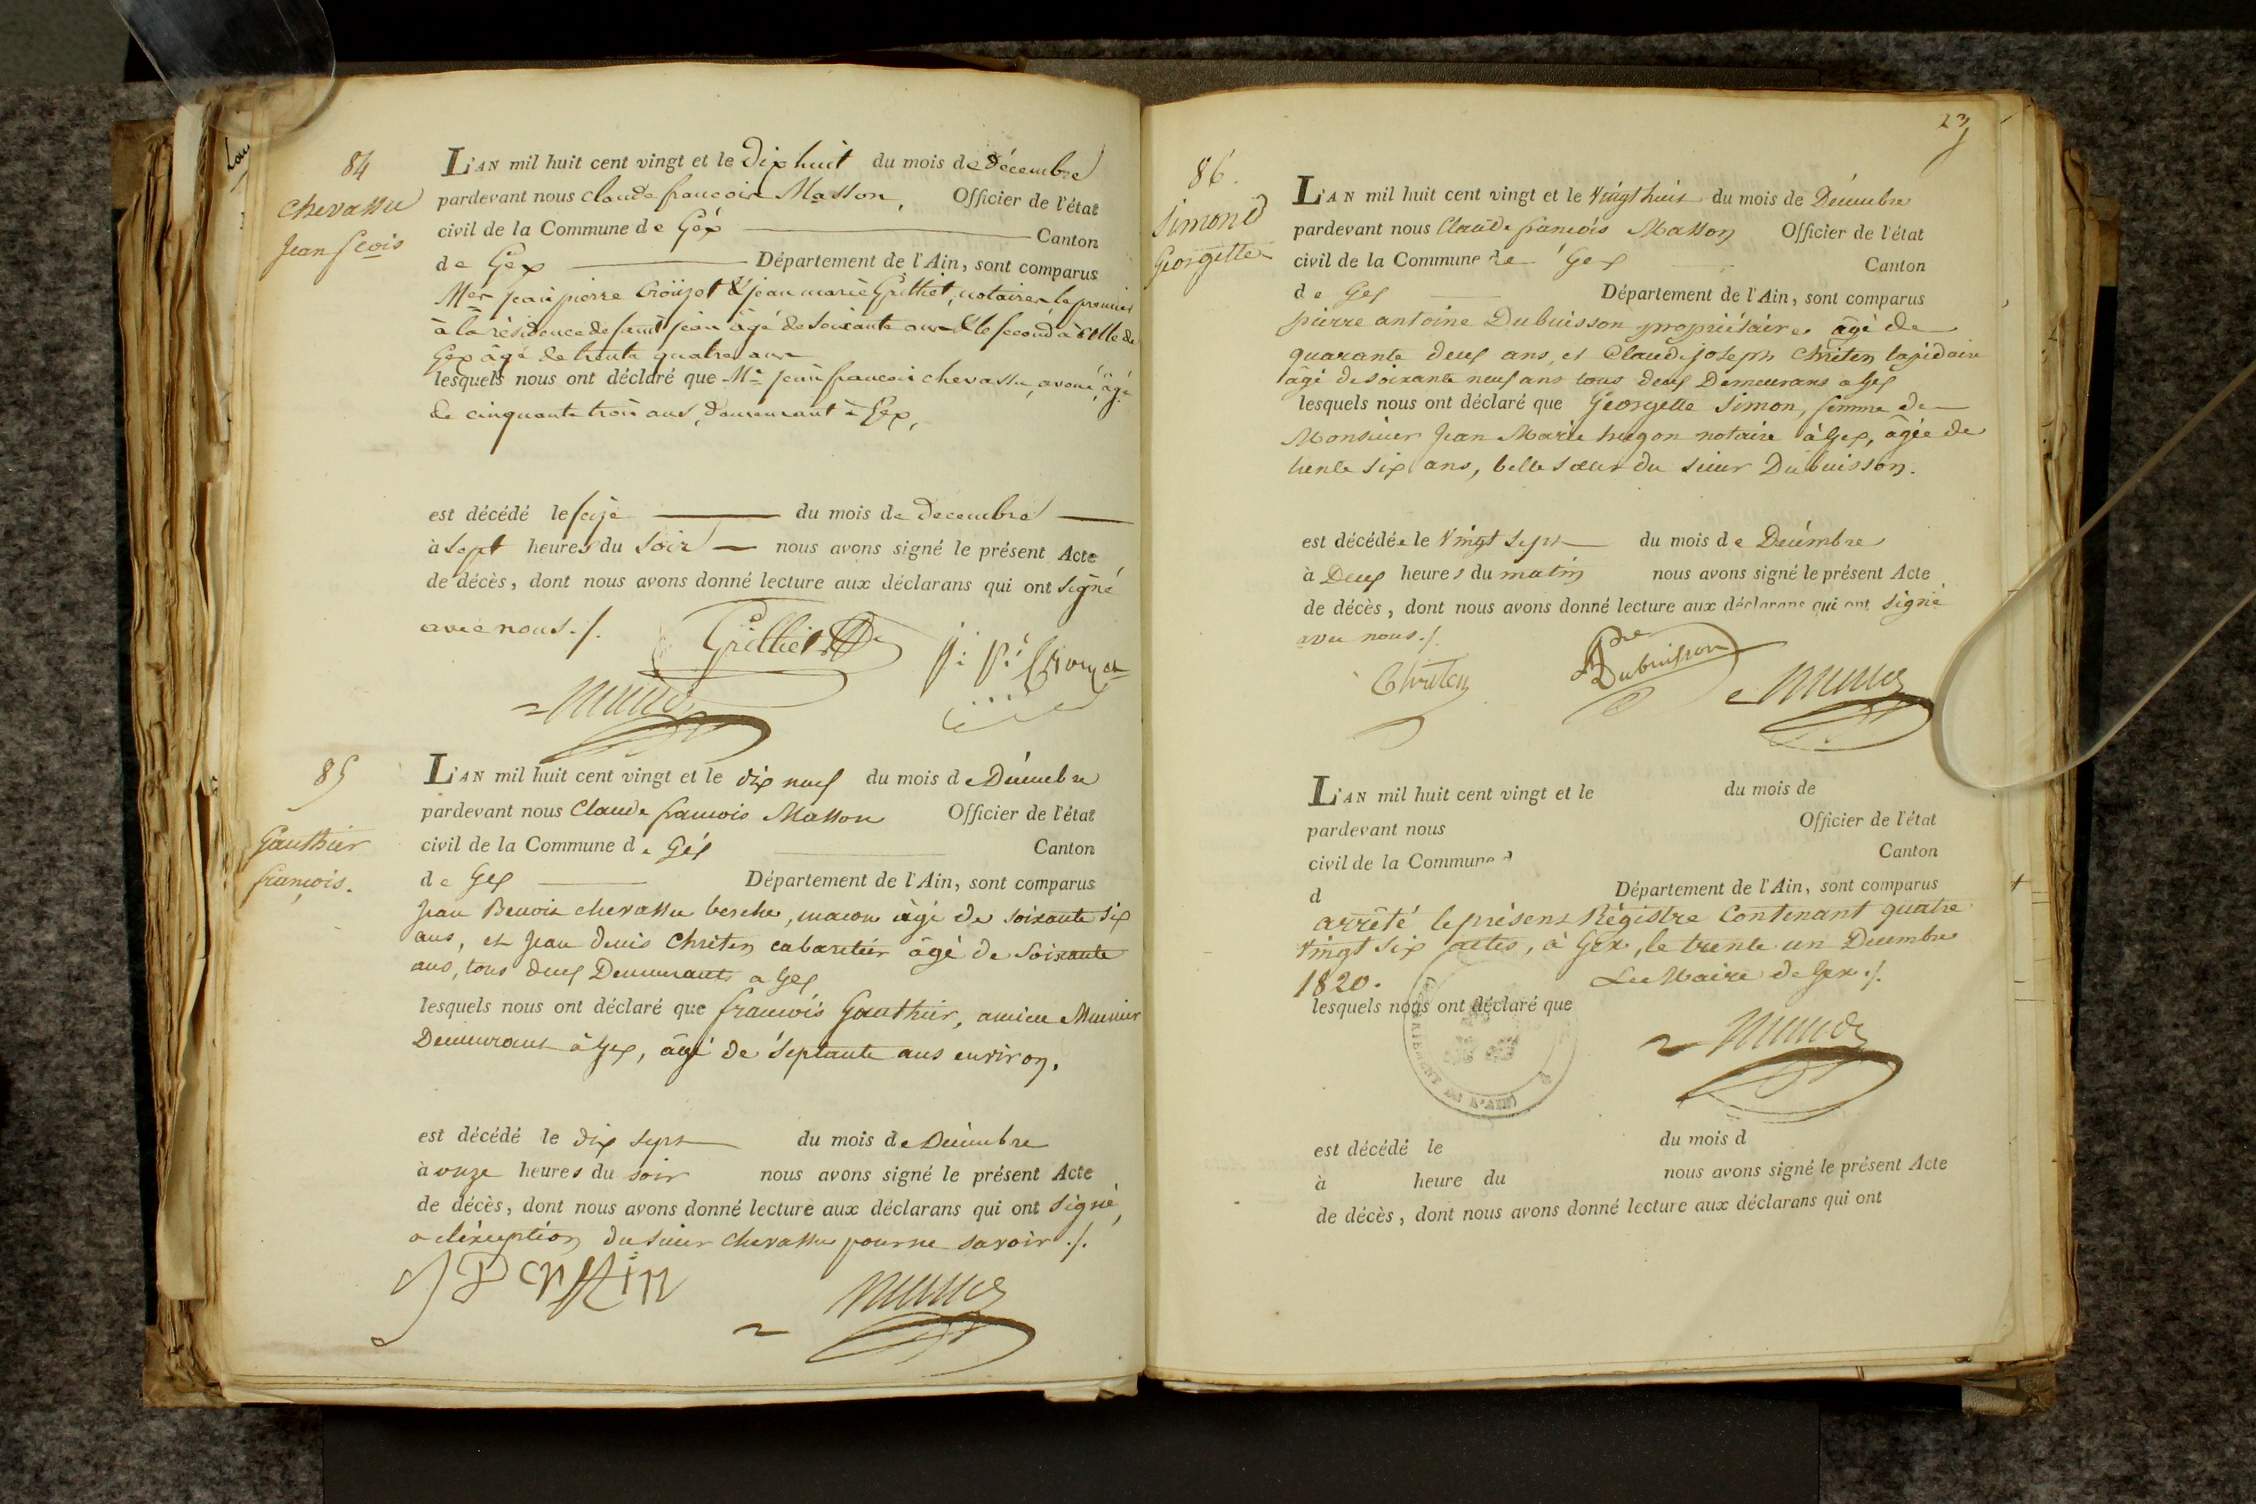 84
Chevassu
Jean fcois
L'AN mil huit cent vingt et le dix huit du mois de Décembre
pardevant nous Claude françois Masson, Officier de l'état
civil de la Commune de Géx Canton
de Gex Département de l'Ain, sont comparus
Mes Jean pierre Crouzot & jean marie Grilliet, notaires le premier
à la résidence de saint jean âgé de soixante ans & le second à celle de
Gex âgé de trente quatre ans
lesquels nous ont déclaré que Me jean françois chevassu, avoué, âgé
de cinquante trois ans, demeurant à Gex,
est décédé le seize du mois de decembre
à sept heures du soir nous avons signé le présent Acte
de décès, dont nous avons donné lecture aux déclarans qui ont signé
avec nous ./.
Grilliet
85
Gauthier
françois.
L'AN mil huit cent vingt et le dix neuf du mois de Décembre
pardevant nous Claude françois Masson Officier de l'état
civil de la Commune de Géx Canton
de Gex Département de l'Ain, sont comparus
Jean Benoit chevassu berche, macon âgé de soixante six
ans, et Jean denis Chrêten cabaretier âgé de soixante
ans, tous deux Demeurants a Gex
lesquels nous ont déclaré que françois Gauthier, ancien Meunier
Demeurant à Gex, âgé de septante ans environ.
est décédé le dix sept du mois de Décembre
à onze heures du soir nous avons signé le présent Acte
de décès, dont nous avons donné lecture aux déclarans qui ont signé,
a l'éxception du sieur Chevassu pour ne savoir ./.
23
86.
Simond
Georgette
L'AN mil huit cent vingt et le vingt huit du mois de Décembre
pardevant nous Claude françois Masson Officier de l'état
civil de la Commune de Gex Canton
de Gex Département de l'Ain, sont comparus
pierre antoine Dubuisson propriétaire, âgé de
quarante deux ans, et Claude joseph Chrêten lapidaire
âgé de soixante neuf ans tous deux Demeurans a Gex
lesquels nous ont déclaré que Georgette Simon, femme de
Monsieur Jean Marie hugon notaire à Gex, âgée de
trente six ans, belle sœur du sieur Dubuisson.
est décédée le vingt sept du mois de Décembre
à Deux heures du matin nous avons signé le présent Acte
de décès, dont nous avons donné lecture aux déclarans qui ont signé
avec nous ./.
Chreten Dubuisson
L'AN mil huit cent vingt et le du mois de
pardevant nous Officier de l'état
civil de la Commune d Canton
d Département de l'Ain, sont comparus
arrêté le présent Régistre Contenant quatre
vingt six actes, à Gex, le trente un Decembre
1820. Le Maire de Gex ./.
lesquels nous ont déclaré que
DE L'AIN
est décédé le du mois d
à heure du nous avons signé le présent Acte
de décès, dont nous avons donné lecture aux déclarans qui ont